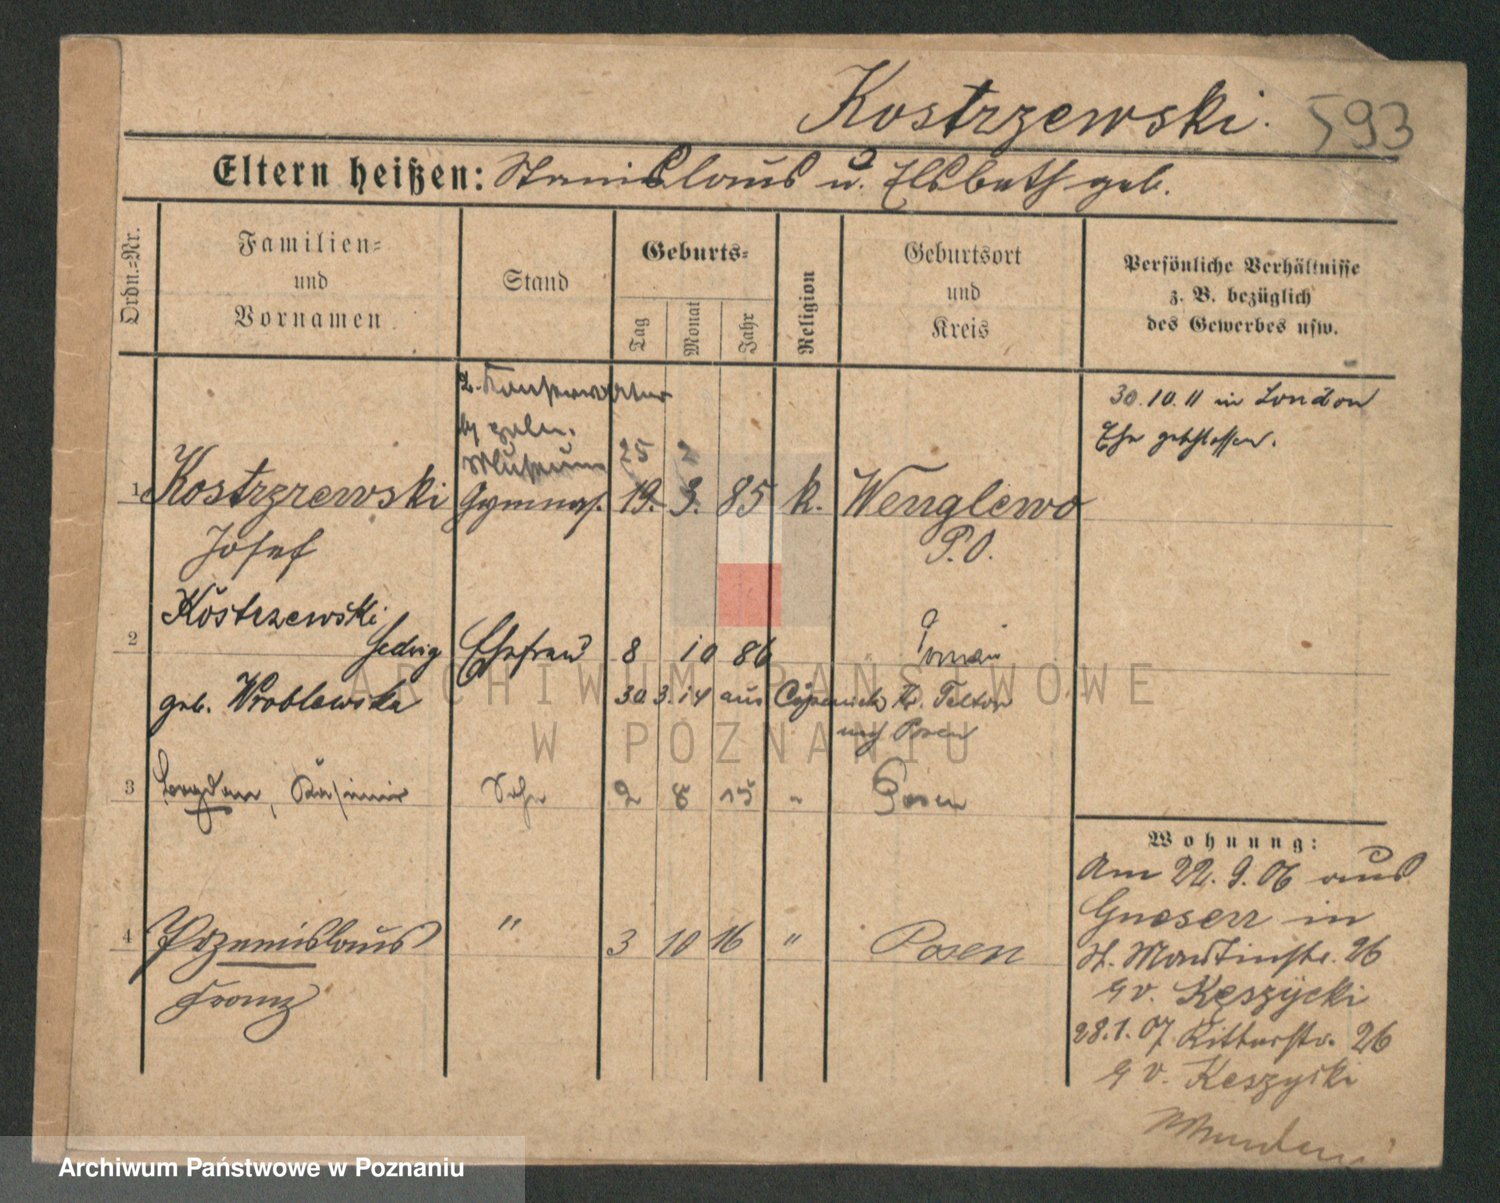 Kostrzewski. 593
Eltern heißen: Stanislaus u. Elsbeth geb.
Ordn.-Nr.
Familien-
und
Vornamen
Stand
Geburts-
Tag
Monat
Jahr
Religion
Geburtsort
und
Kreis
Persönliche Verhältnisse
z. B. bezüglich
des Gewerbes usw.
30.10.11 in London
Ehe geschlossen.
Museum 25 2
1 Kostrzewski Gymnas. 19. 3. 85 k. Wenglewo
Josef P.O.
Kostrzewski
2 Hedwig Ehefrau 8 10 86
geb. Wroblewska 30.3.14 aus Cöpenick Kr. Teltow
nach Posen
3 Bogdan, Kasimir Sohn 2 8 15 " Posen
4 Przemislaus " 3 10 16 " Posen
Franz
Wohnung:
Am 22.9.06 aus
Gnesen in
St. Martinstr. 26
b v. Kęszycki
28.1.07 Ritterstr. 26
b v. Keszycki
ARCHIWUM PAŃSTWOWE
W POZNANIU
Archiwum Państwowe w Poznaniu